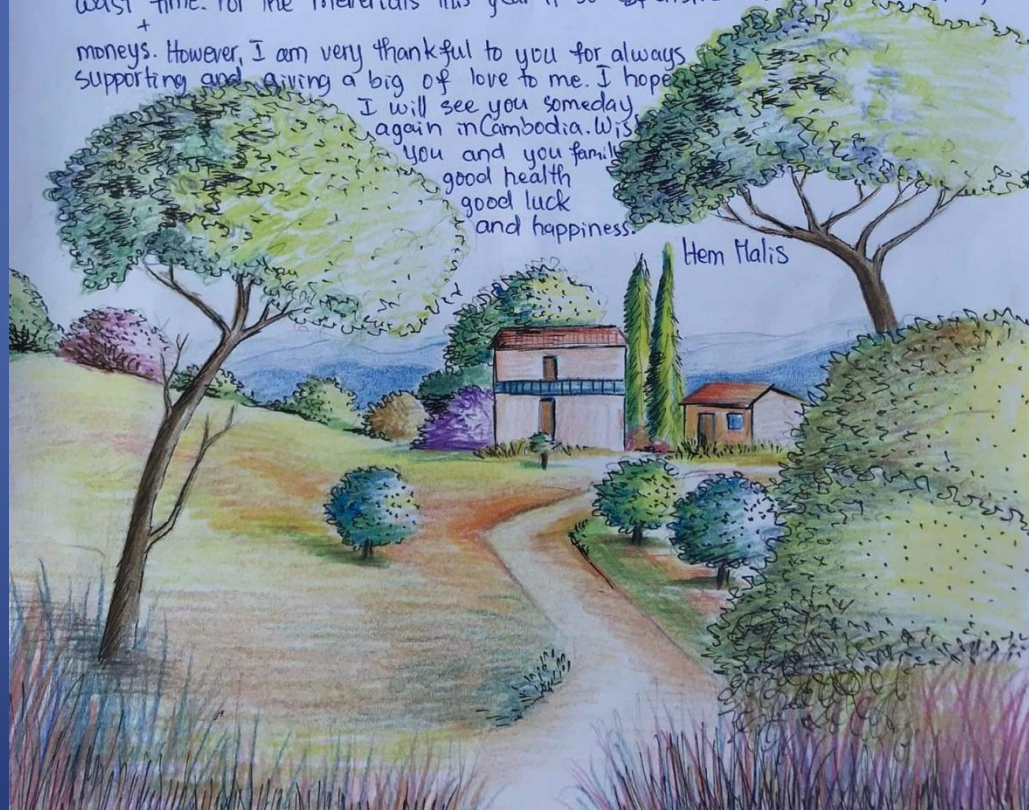 wast time. For the materials this year is so
t
moneys. However, I am very thankful to you for always
supporting and giving a big of love to me. I hope
I will see you someday
again in Cambodia. Wis
you and you famil
good health
good luck
and happiness.
Hem Malis